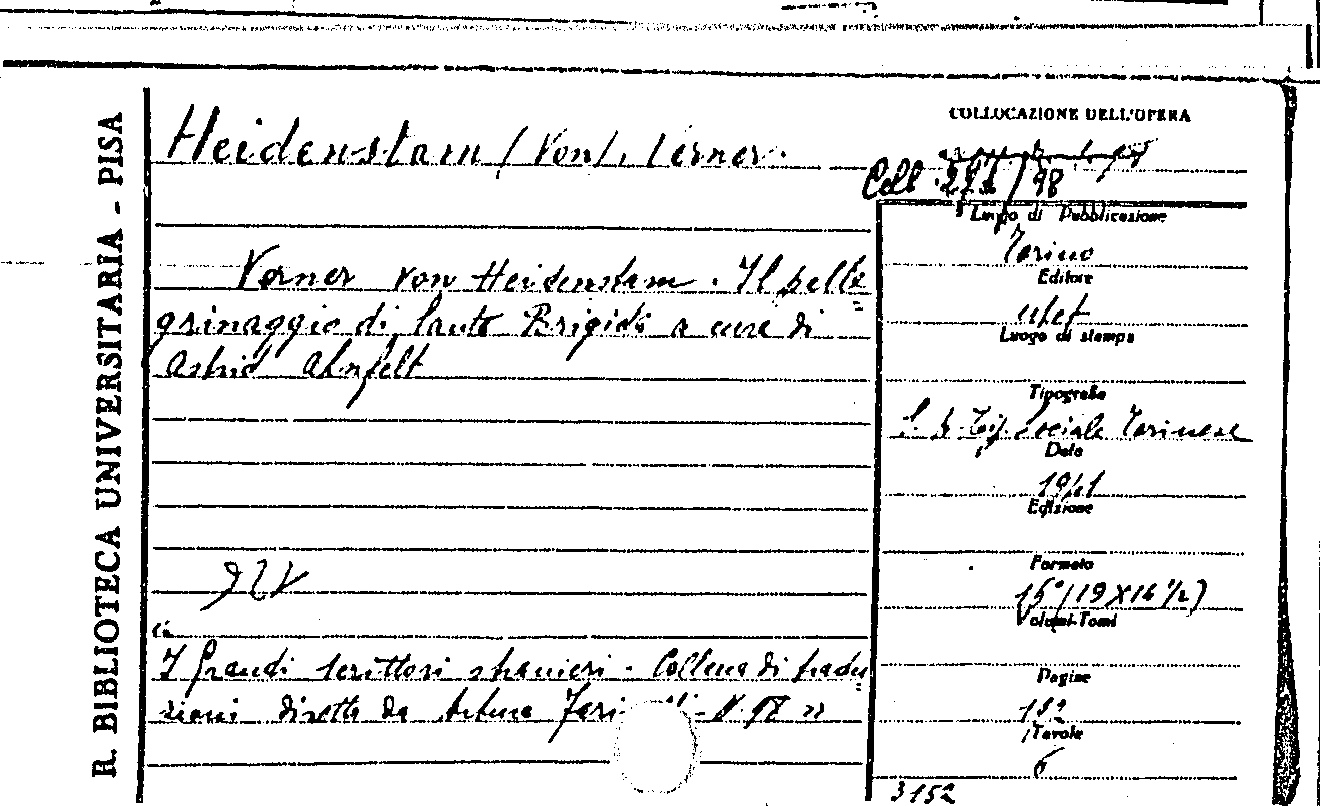 R. BIBLIOTECA UNIVERSITARIA - PISA
Heidenstam (Von), Verner.
Verner von Heidenstam. Il pelle=
grinaggio di Santa Brigida a cura di
Astrid Ahnfelt
"
I grandi scrittori stranieri - Collana di tradu=
zioni diretta da Arturo Fari - N. 98 "
COLLOCAZIONE DELL'OPERA
Coll. 221/98
Luogo di Pubblicazione
Torino
Editore
utet
Luogo di stampa
Tipografia
Tip. Sociale Torinese
Data
1941
Edizione
Formato
(19 X 12 1/2)
Volumi-Tomi
Pagine
182
Tavole
3152